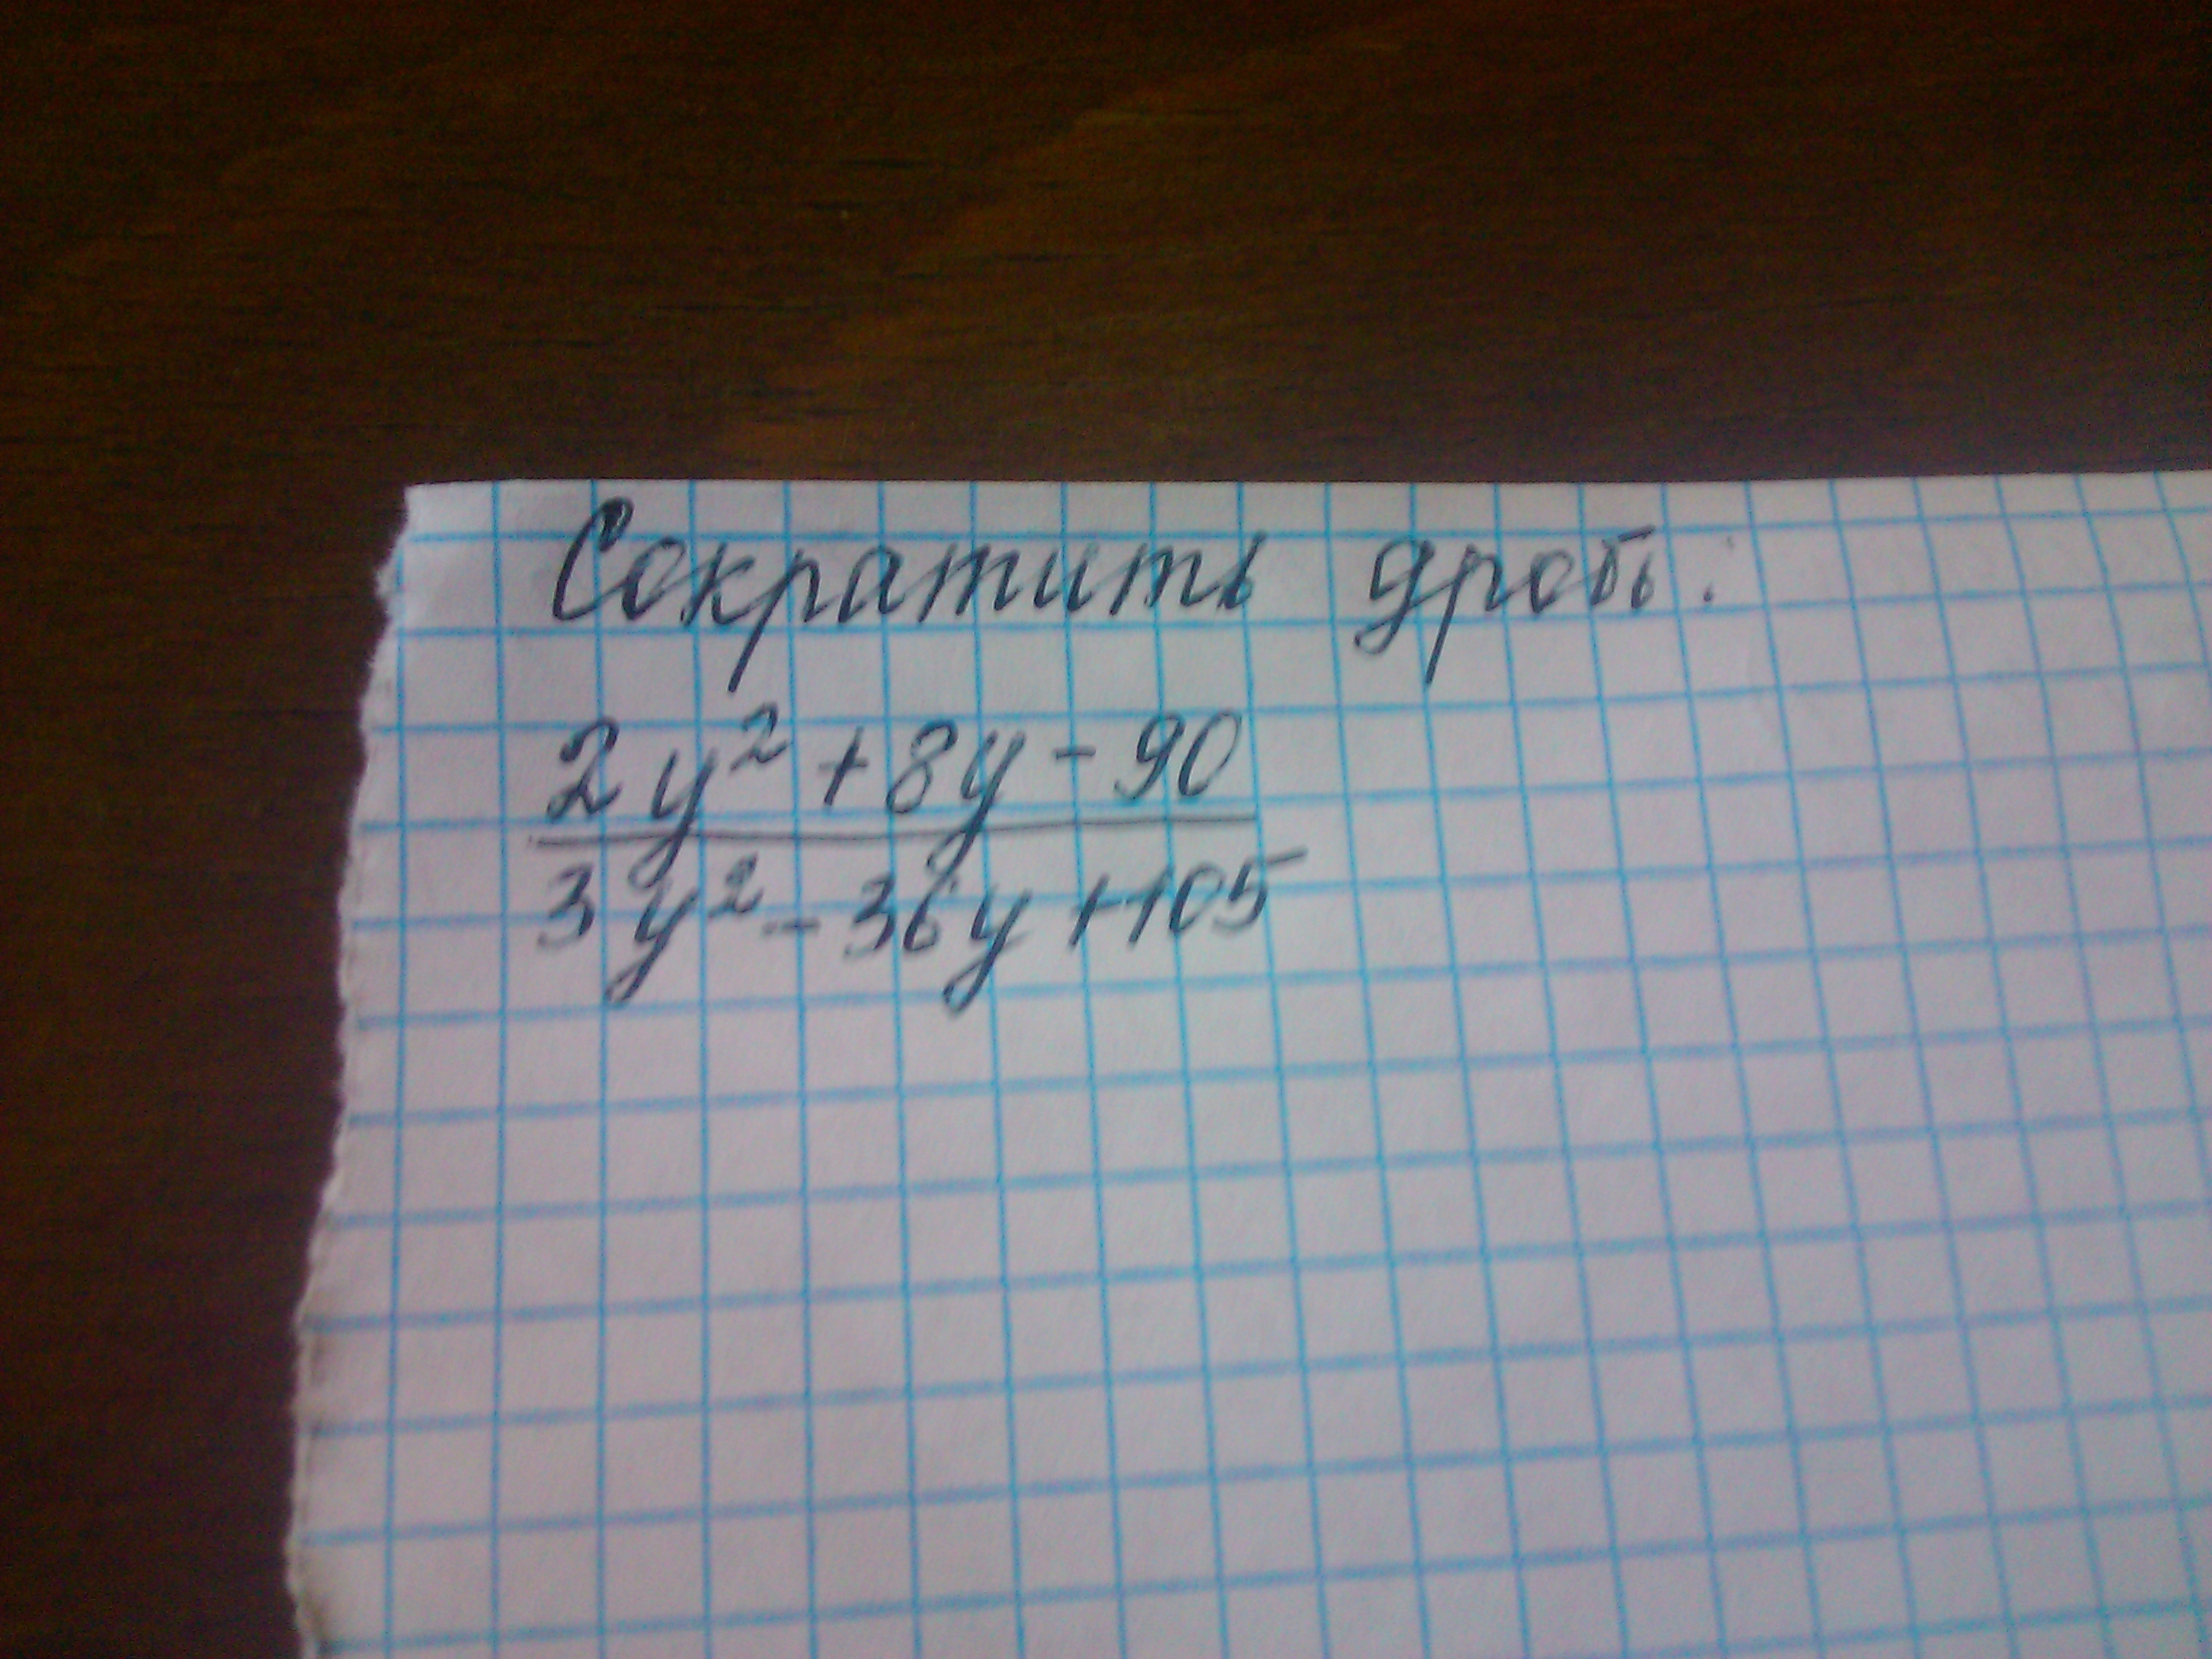 Сократить дробь.
2y² + 8y - 90
3y² - 36y + 105